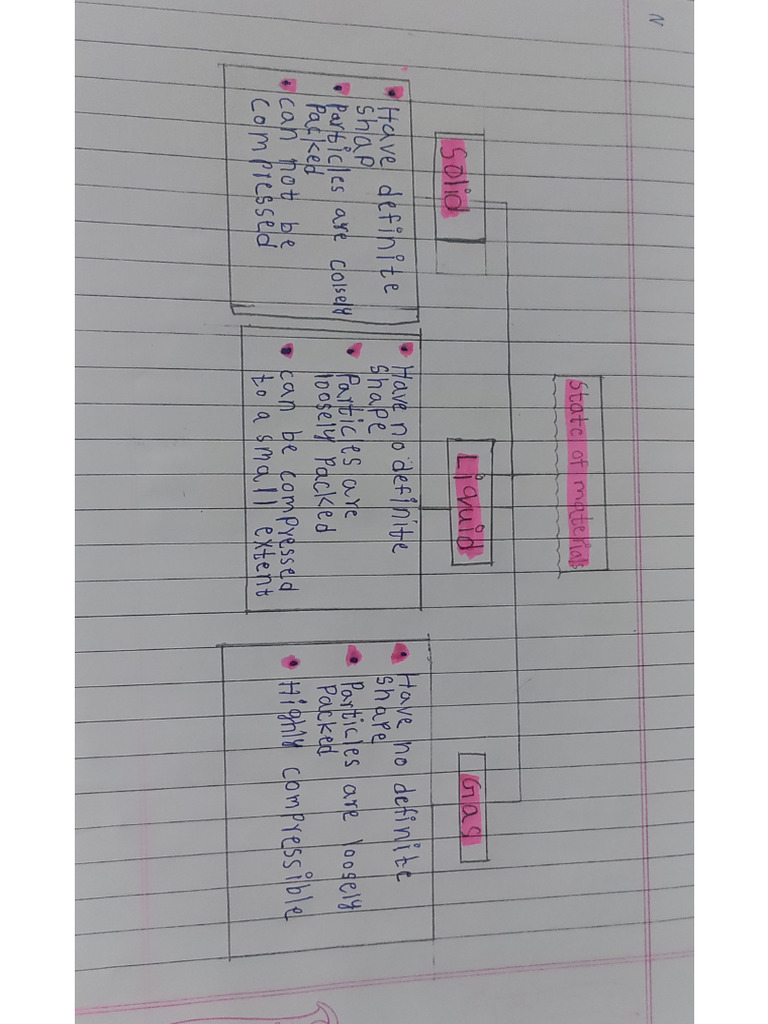 N
State of materials
Solid
Have definite
shap
Particles are colsely
Packed
can not be
compressed
Liquid
Have no definite
shape
Particles are
loosely packed
can be compressed
to a small extent
Gas
Have no definite
shape
Particles are loosely
Packed
Highly compressible